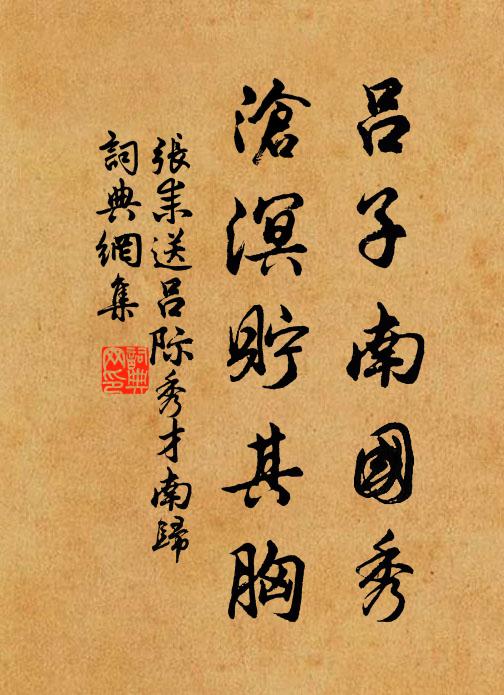 呂子南國秀
滄溟貯其胸
張耒送呂際秀才南歸
詞典網集
詞典
網印